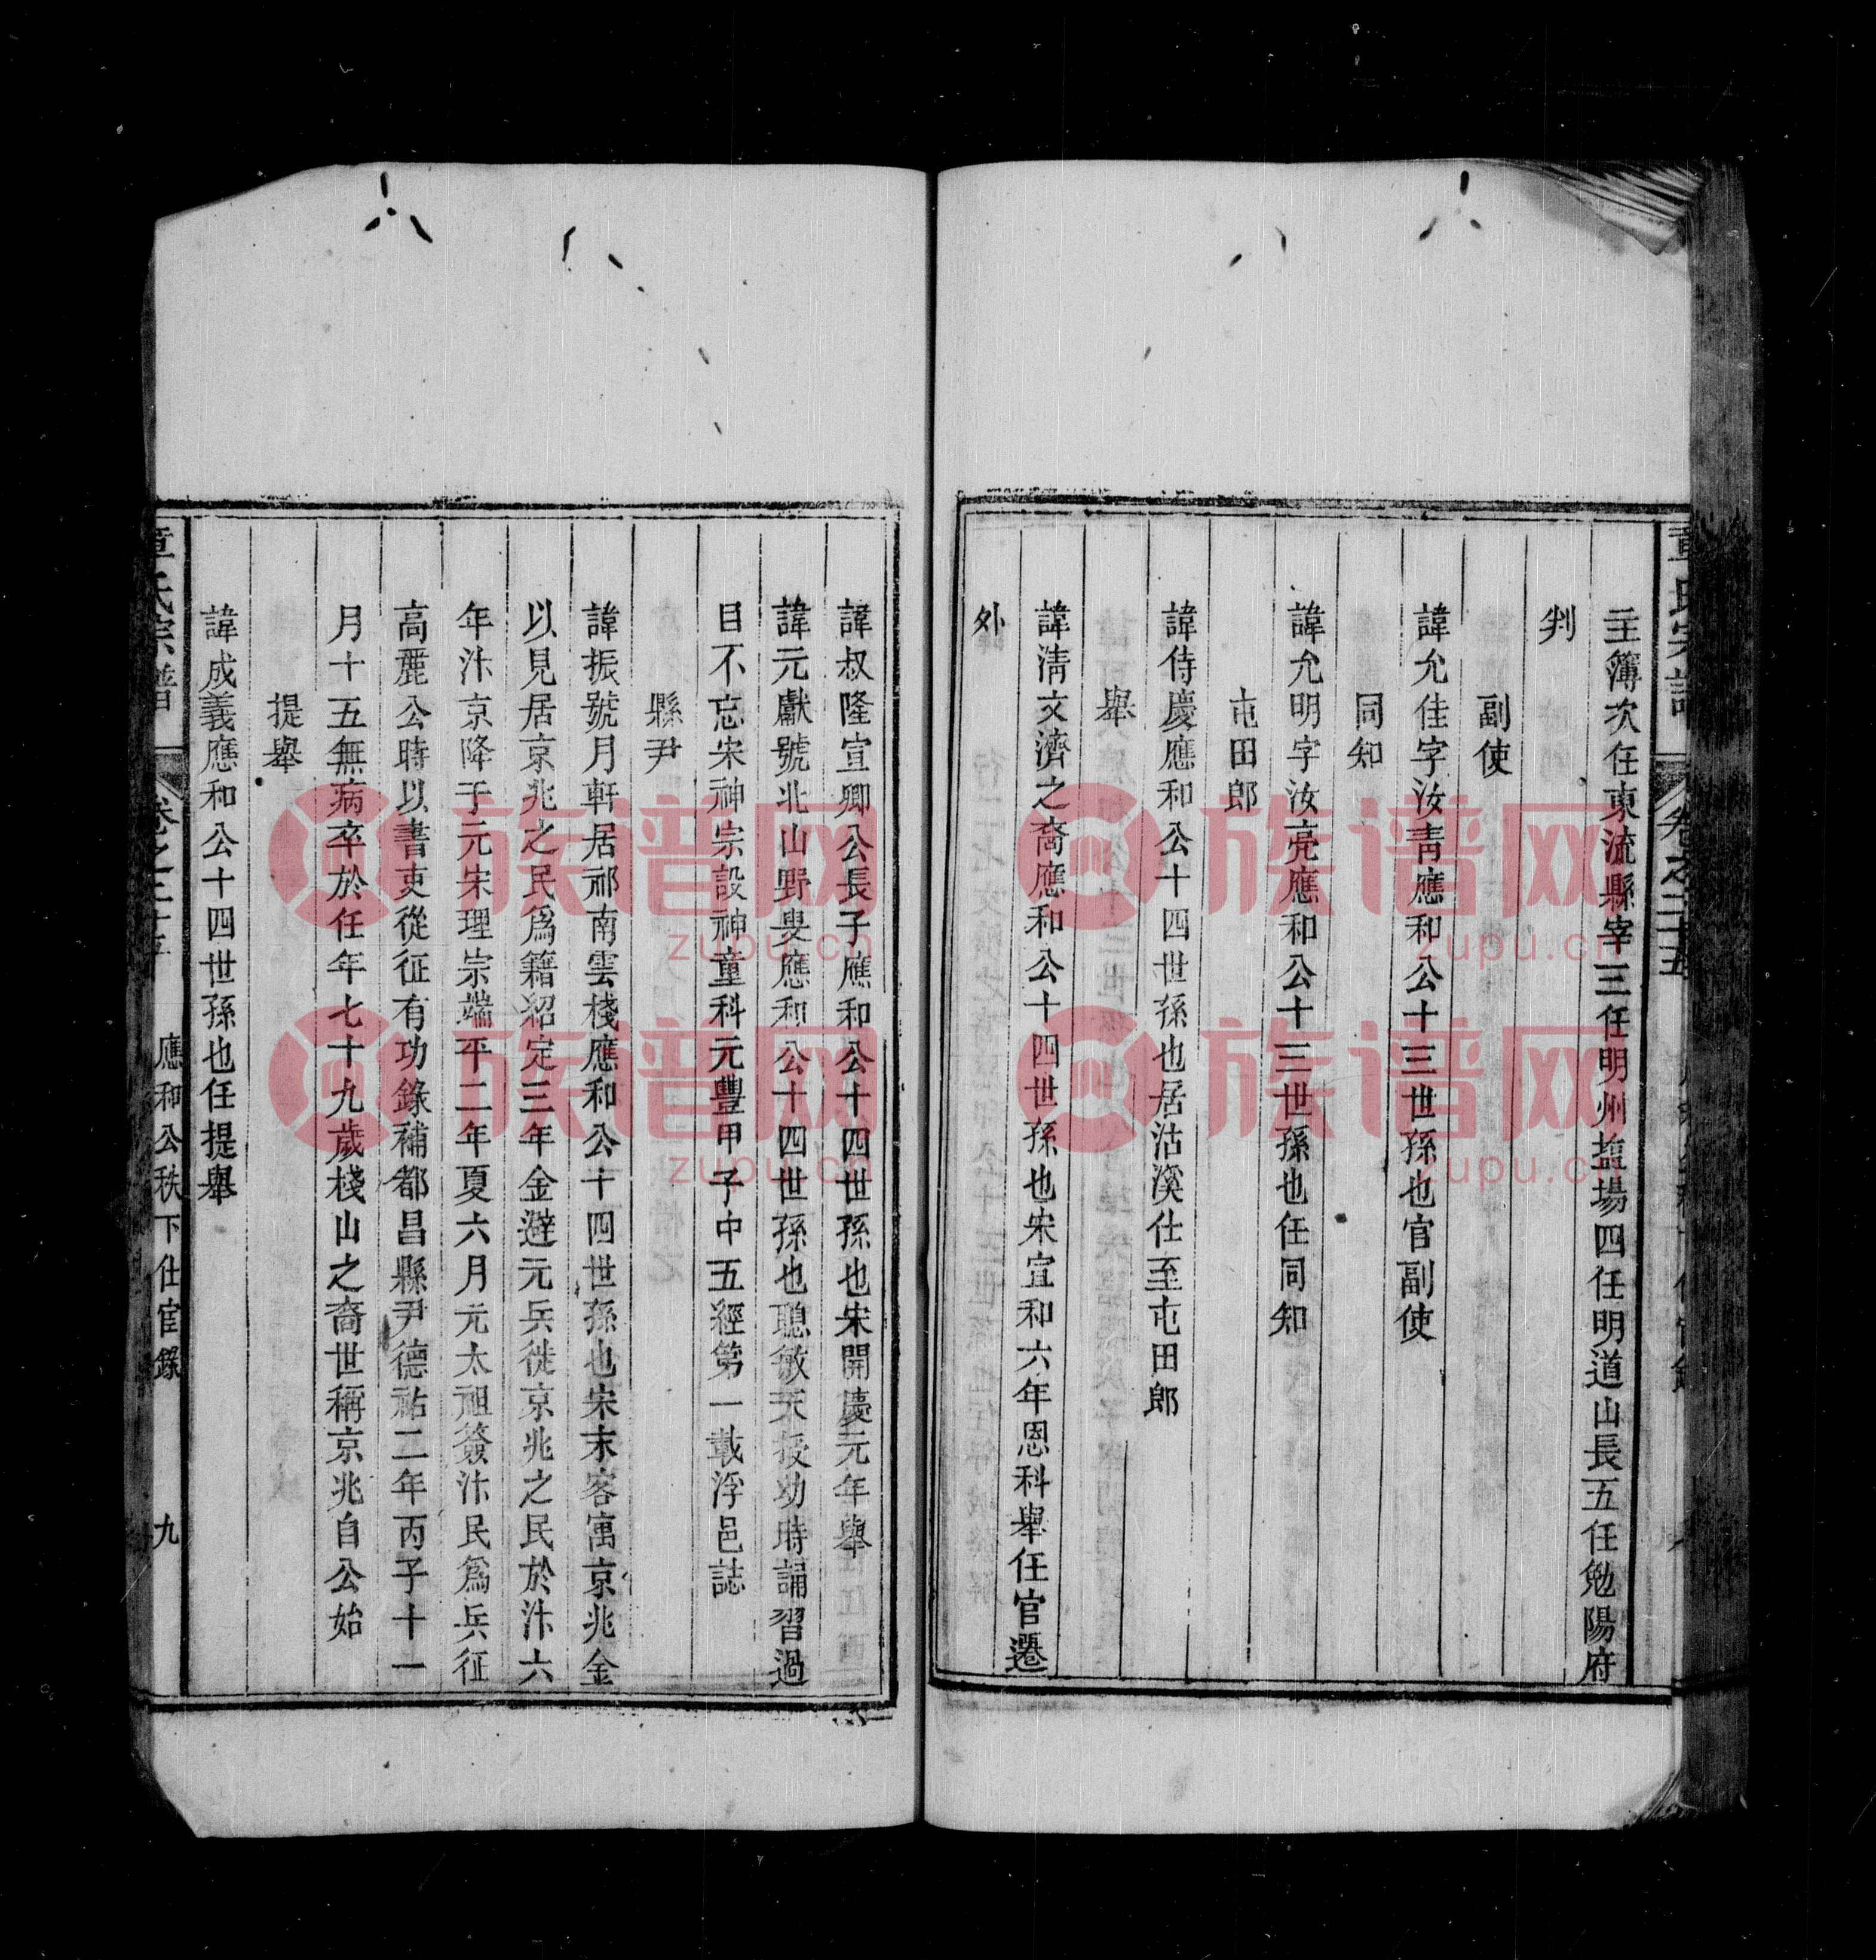 主簿次任東流縣宰三任明州塩場四任明道山長五任勉陽府
判
副使
諱允佳字汝靑應和公十三世孫也官副使
同知
諱允明字汝亮應和公十三世孫也任同知
屯田郎
諱侍慶應和公十四世孫也居沽溪仕至屯田郎
舉
諱淸文濟之裔應和公十四世孫也宋宣和六年恩科舉任官遷
外
諱叔隆宣卿公長子應和公十四世孫也宋開慶元年舉
諱元獻號北山野叟應和公十四世孫也聰敏天授幼時誦習過
目不忘宋神宗設神童科元豐甲子中五經第一載浮邑誌
縣尹
諱振號月軒居祁南雲棧應和公十四世孫也宋末客寓京兆金
以見居京兆之民爲籍紹定三年金避元兵徙京兆之民於汴六
年汴京降于元宋理宗端平二年夏六月元太祖簽汴民爲兵征
高麗公時以書吏從征有功錄補都昌縣尹德祐二年丙子十一
月十五無病卒於任年七十九歲棧山之裔世稱京兆自公始
提舉
諱成義應和公十四世孫也任提舉
章氏宗譜 卷之二十五 應和公秩下仕宦錄 九
族谱网
zupu.cn
族谱网
zupu.cn
族谱网
zupu.cn
族谱网
zupu.cn